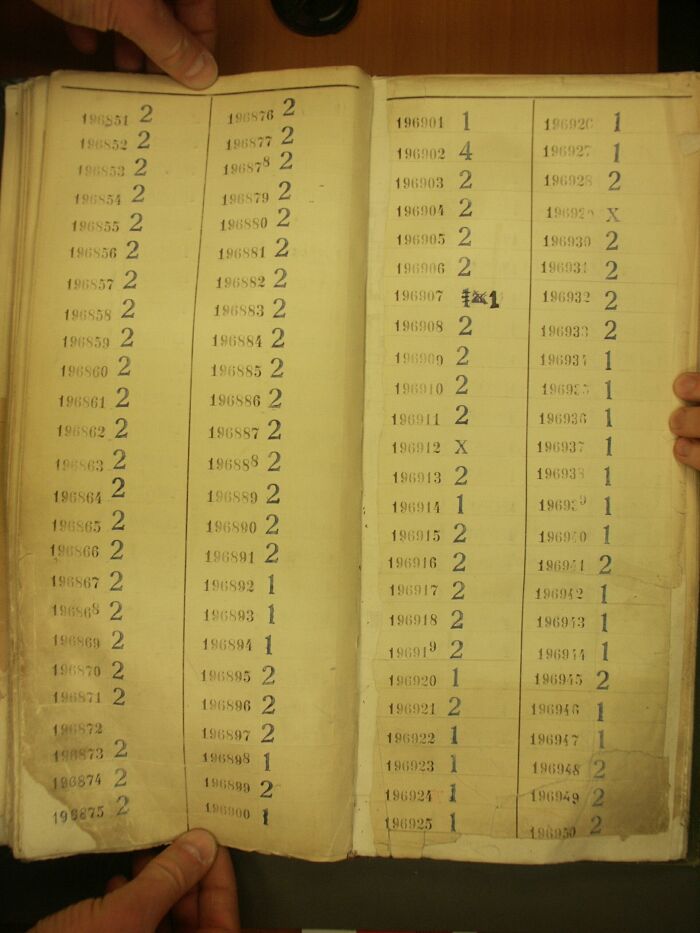 196851 2
196852 2
196853 2
196854 2
196855 2
196856 2
196857 2
196858 2
196859 2
196860 2
196861 2
196862 2
196863 2
196864 2
196865 2
196866 2
196867 2
196868 2
196869 2
196870 2
196871 2
196872
196873 2
196874 2
196875 2
196876 2
196877 2
196878 2
196879 2
196880 2
196881 2
196882 2
196883 2
196884 2
196885 2
196886 2
196887 2
196888 2
196889 2
196890 2
196891 2
196892 1
196893 1
196894 1
196895 2
196896 2
196897 2
196898 1
196899 2
196900 1
196901 1
196902 4
196903 2
196904 2
196905 2
196906 2
196907 1
196908 2
196909 2
196910 2
196911 2
196912 X
196913 2
196914 1
196915 2
196916 2
196917 2
196918 2
196919 2
196920 1
196921 2
196922 1
196923 1
196924 1
196925 1
196926 1
196927 1
196928 2
196929 X
196930 2
196931 2
196932 2
196933 2
196934 1
196935 1
196936 1
196937 1
196938 1
196939 1
196940 1
196941 2
196942 1
196943 1
196944 1
196945 2
196946 1
196947 1
196948 2
196949 2
196950 2